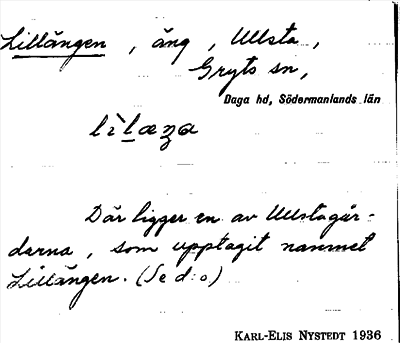 Lillängen, äng, Ullsta,
Gryts sn,
Daga hd, Södermanlands län
Där ligger en av Ullstagår-
darna, som upptagit namnet
Lillängen. (Se d:o)
KARL-ELIS NYSTEDT 1936